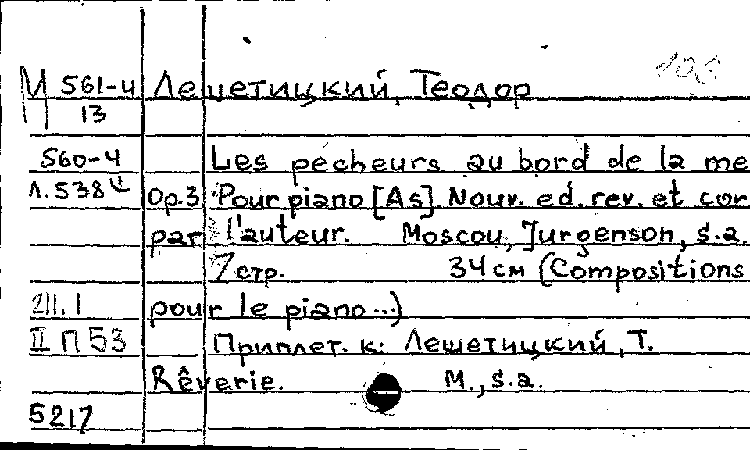 М 561-4 Лешетицкий, Теодор
13
560-4 Les pecheurs au bord de la me
Л.538 Op.3 Pour piano [As]. Nouv. ed. rev. et cor
par l'auteur. Moscou, Jurgenson, s.a.
7 стр. 34 см (Compositions
pour le piano...)
II П 53 Приплет. к: Лешетицкий, Т.
Rêverie. М., s.a.
5217